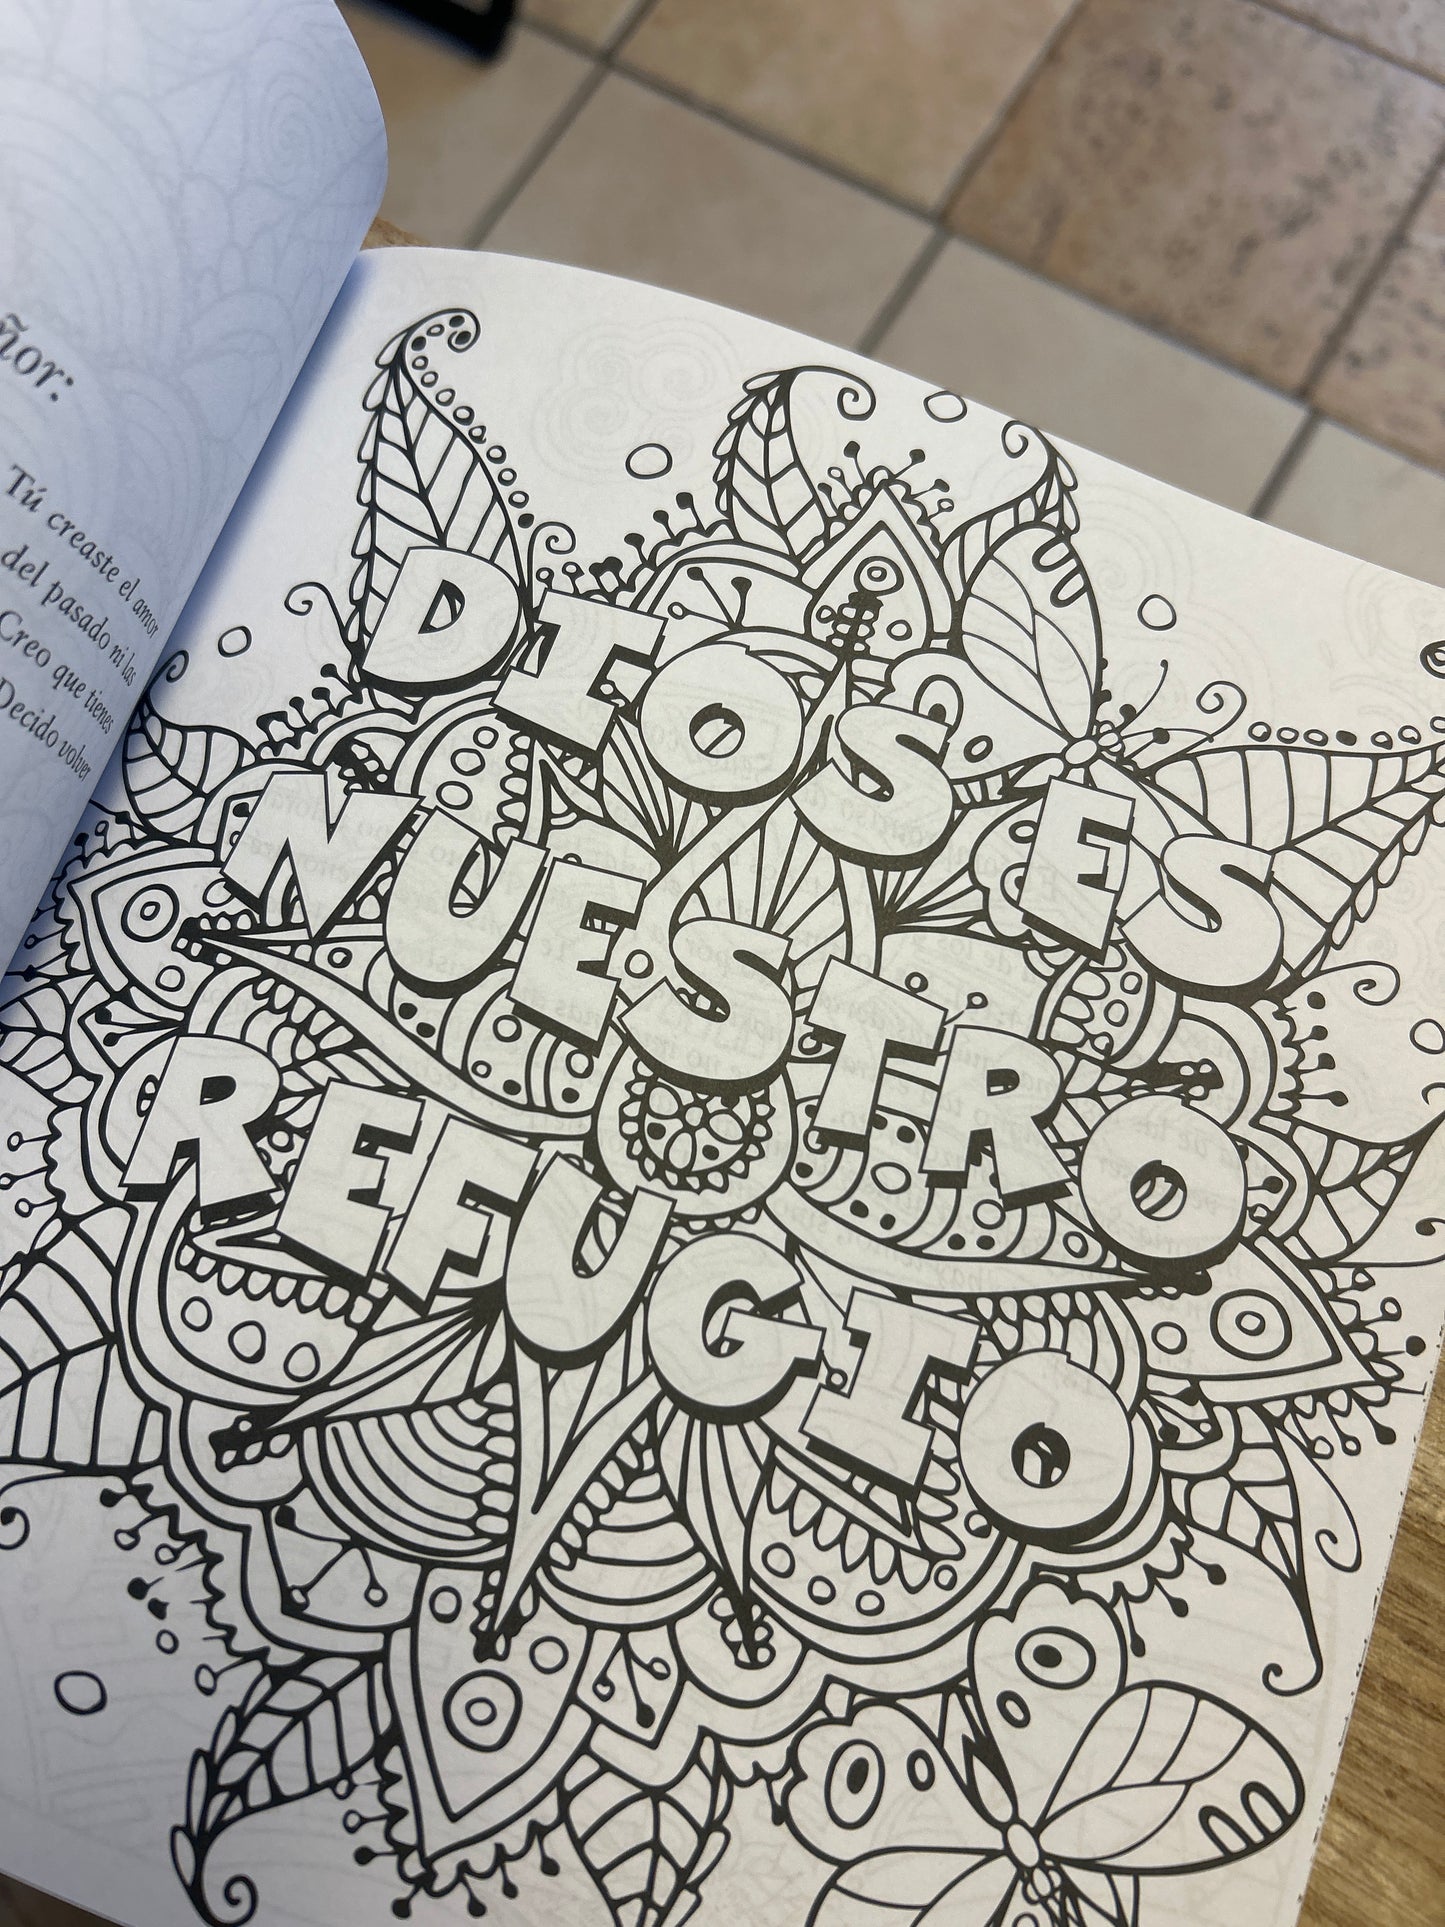 ñor:
Tú creaste el amor
del pasado ni las
Creo que tienes
Decido volver
DIOS ES
NUESTRO
REFUGIO